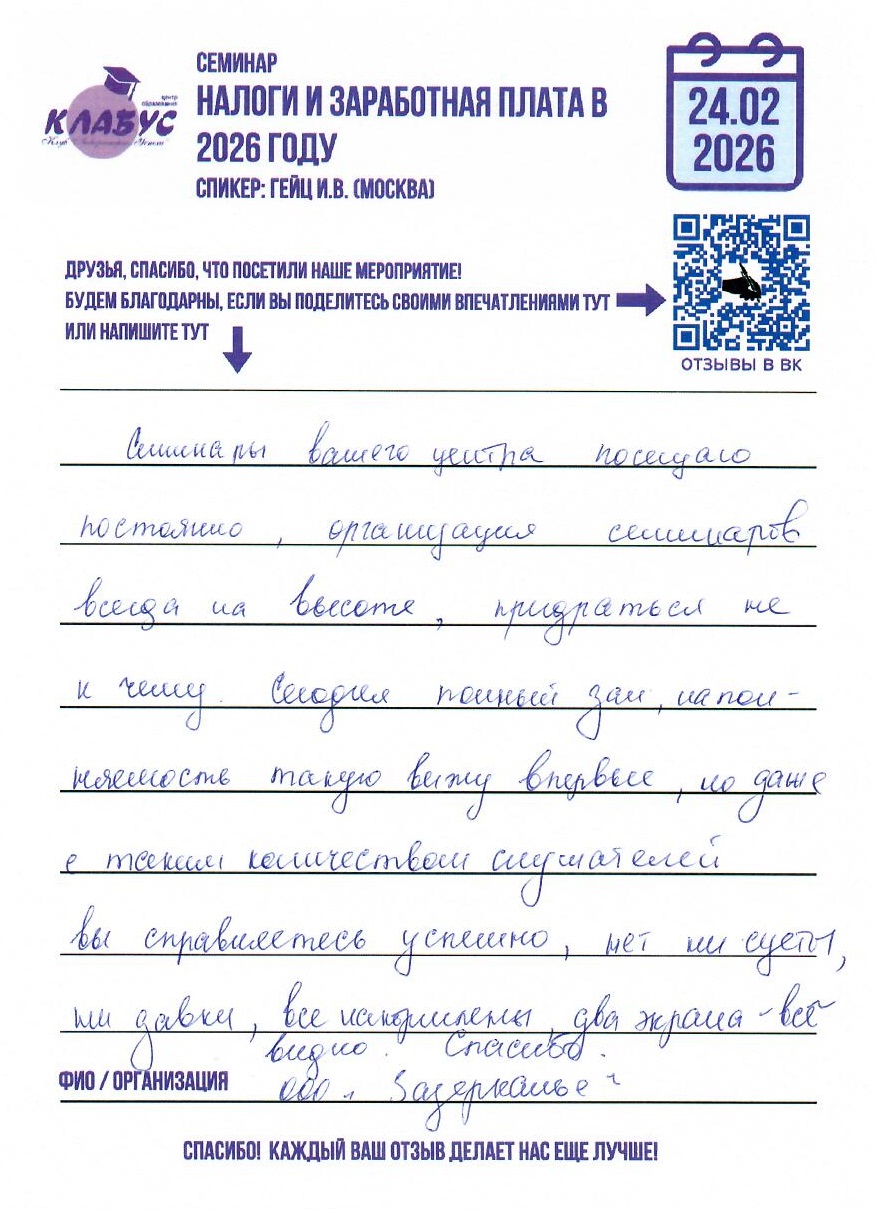 СЕМИНАР
НАЛОГИ И ЗАРАБОТНАЯ ПЛАТА В
2026 ГОДУ
СПИКЕР: ГЕЙЦ И.В. (МОСКВА)
центр
образования
КЛАБУС
24.02
2026
ДРУЗЬЯ, СПАСИБО, ЧТО ПОСЕТИЛИ НАШЕ МЕРОПРИЯТИЕ!
БУДЕМ БЛАГОДАРНЫ, ЕСЛИ ВЫ ПОДЕЛИТЕСЬ СВОИМИ ВПЕЧАТЛЕНИЯМИ ТУТ
ИЛИ НАПИШИТЕ ТУТ
ОТЗЫВЫ В ВК
Семинары вашего центра посещаю
постоянно, организация семинаров
всегда на высоте, придраться не
к чему. Сегодня полный зал, напол-
няемость такую вижу впервые, но даже
с таким количеством слушателей
вы справляетесь успешно, нет ни суеты,
ни давки, все накормлены, два экрана - всё
видно. Спасибо.
ФИО / ОРГАНИЗАЦИЯ ООО "Зазеркалье"
СПАСИБО! КАЖДЫЙ ВАШ ОТЗЫВ ДЕЛАЕТ НАС ЕЩЕ ЛУЧШЕ!